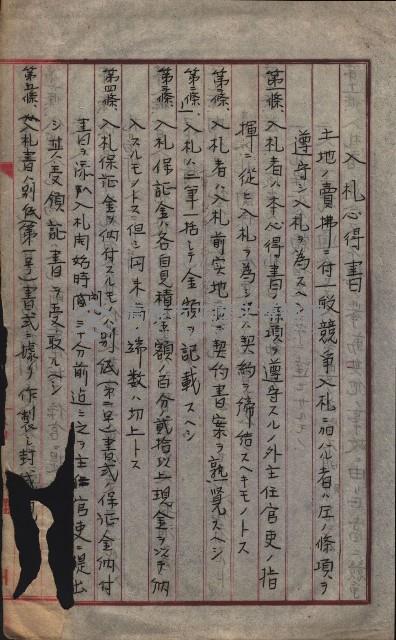 入札心得書
土地ノ賣拂ニ付一般競爭入札ニ加ハル者ハ左ノ條項ヲ
遵守シ入札ヲ為スヘシ
第一條、入札者ハ本心得書ノ條項ヲ遵守スルノ外主任官吏ノ指
揮ニ從ヒ入札ヲ為シ又ハ契約ヲ締結スヘキモノトス
第二條、入札者ハ入札前実地並ニ契約書案ヲ熟覽スヘシ
入札ハ二筆一括シテ金額ヲ記載スヘシ
第三條、入札保証金ハ各自見積金額ノ百分ノ貳拾以上現金ヲ以テ納
入スルモノトス但シ円未満ノ端数ハ切上トス
第四條、入札保証金ヲ納付スルモノハ別紙(第二号)書式ノ保証金納付
書ヲ添ヘ入札開始時間三十分前迄ニ之ヲ主任官吏ニ提出
シ其ノ受領証書ヲ受取ルヘシ
第五條、入札書ハ別紙(第一号)書式ニ據リ作製シ封